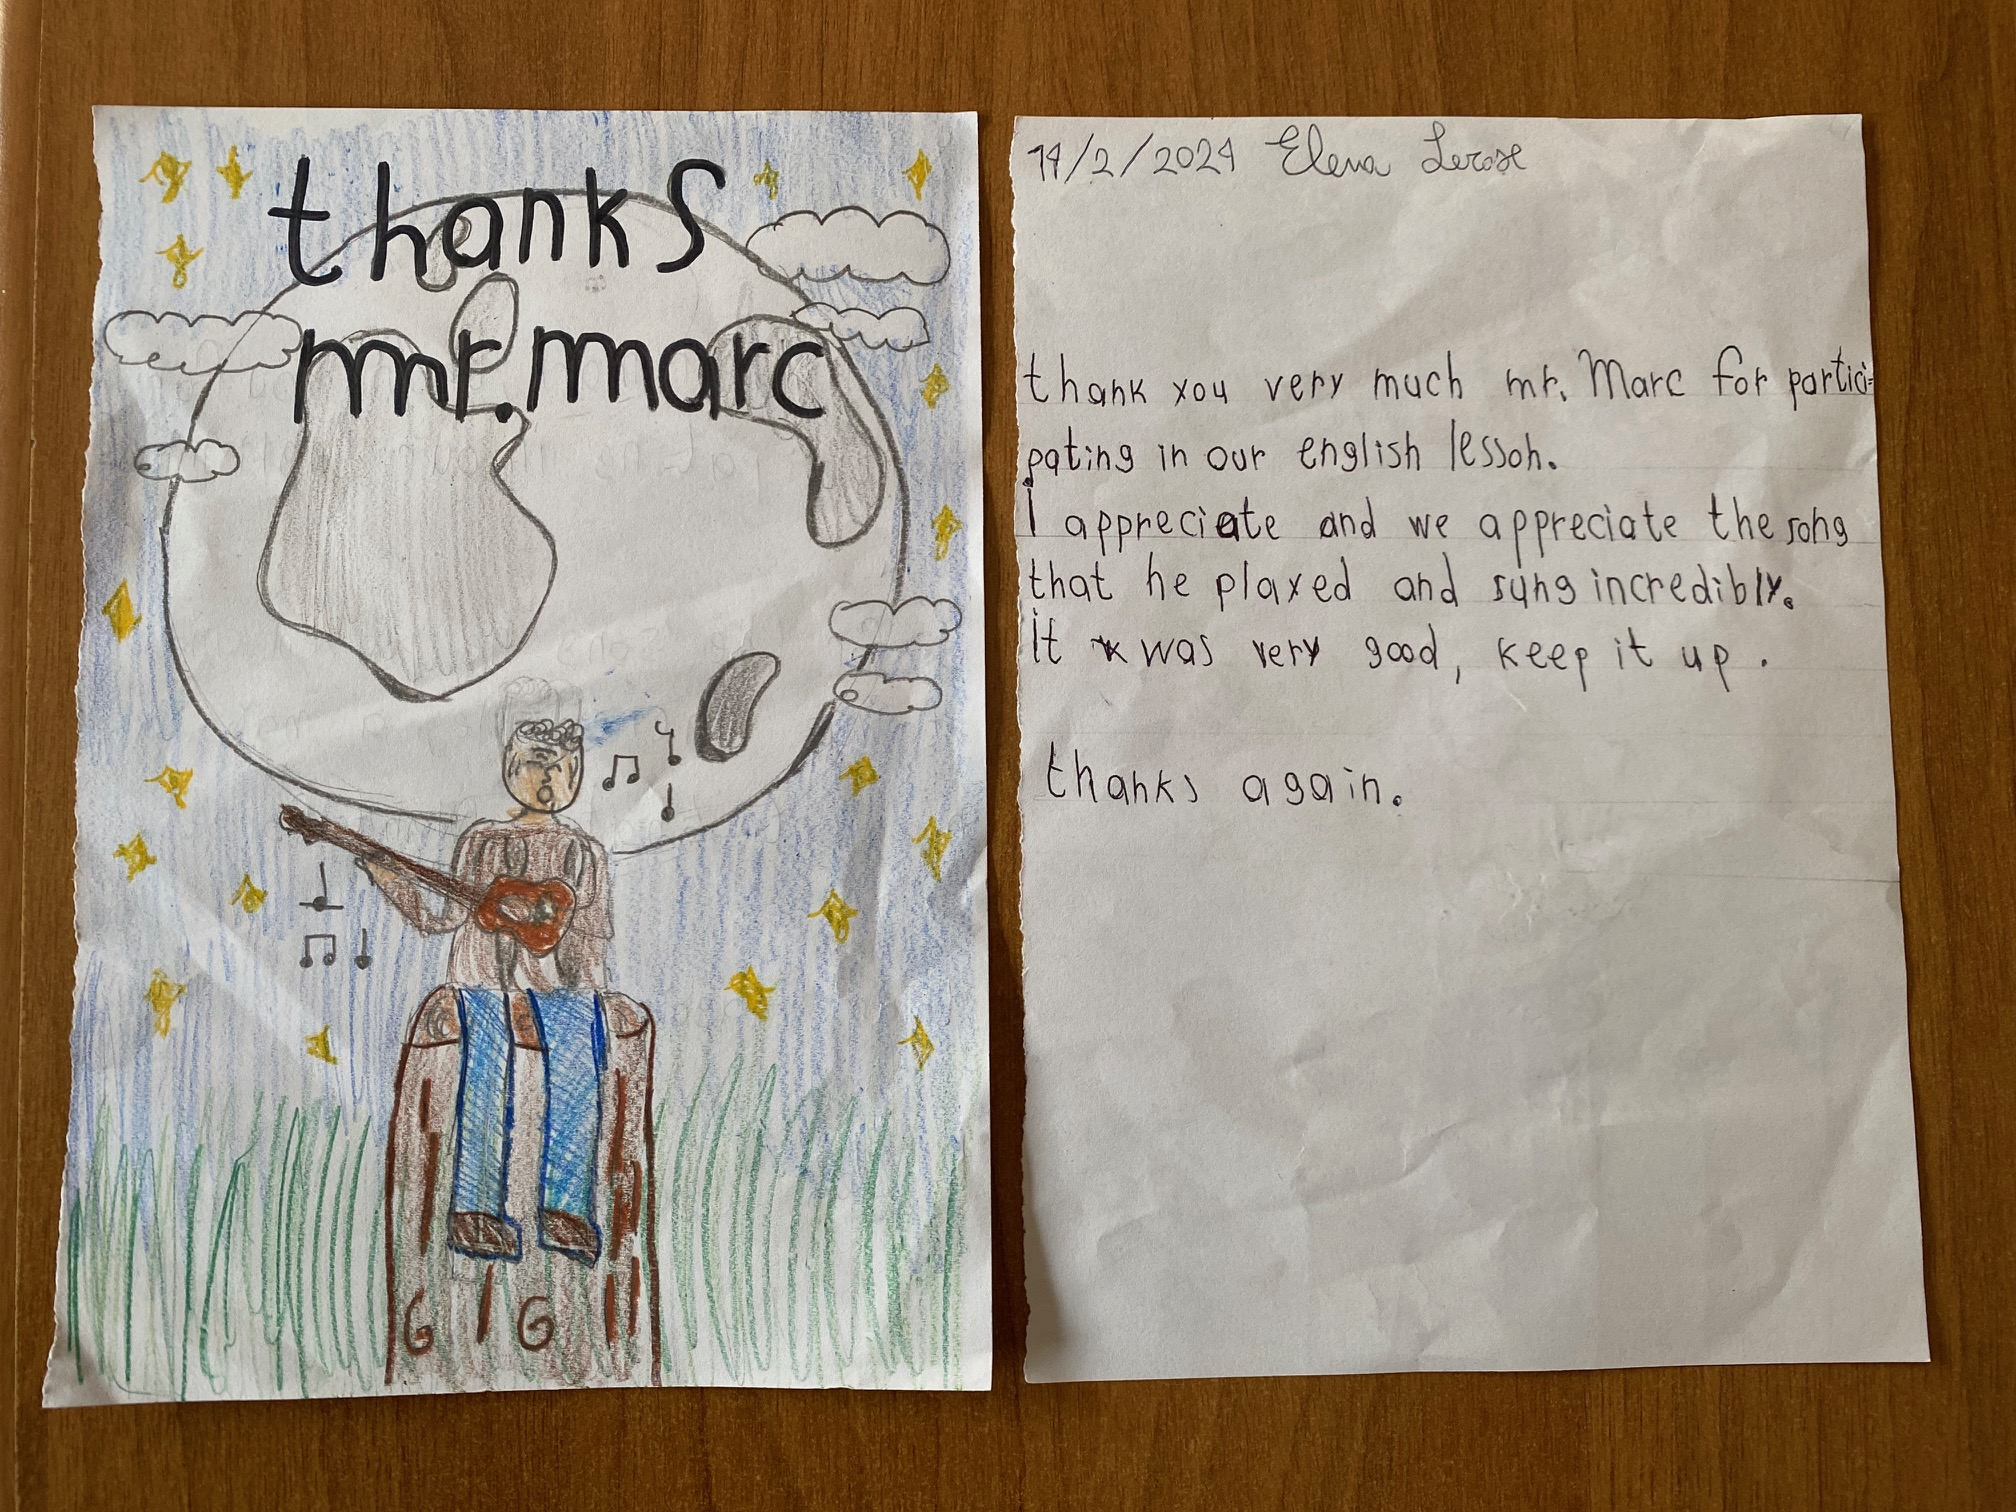 thanks
mr.marc
G I G
14/2/2024 Elena Lerose
thank you very much mr. Marc for partici=
pating in our english lesson.
I appreciate and we appreciate the song
that he played and sung incredibly.
It was very good, keep it up.
thanks again.